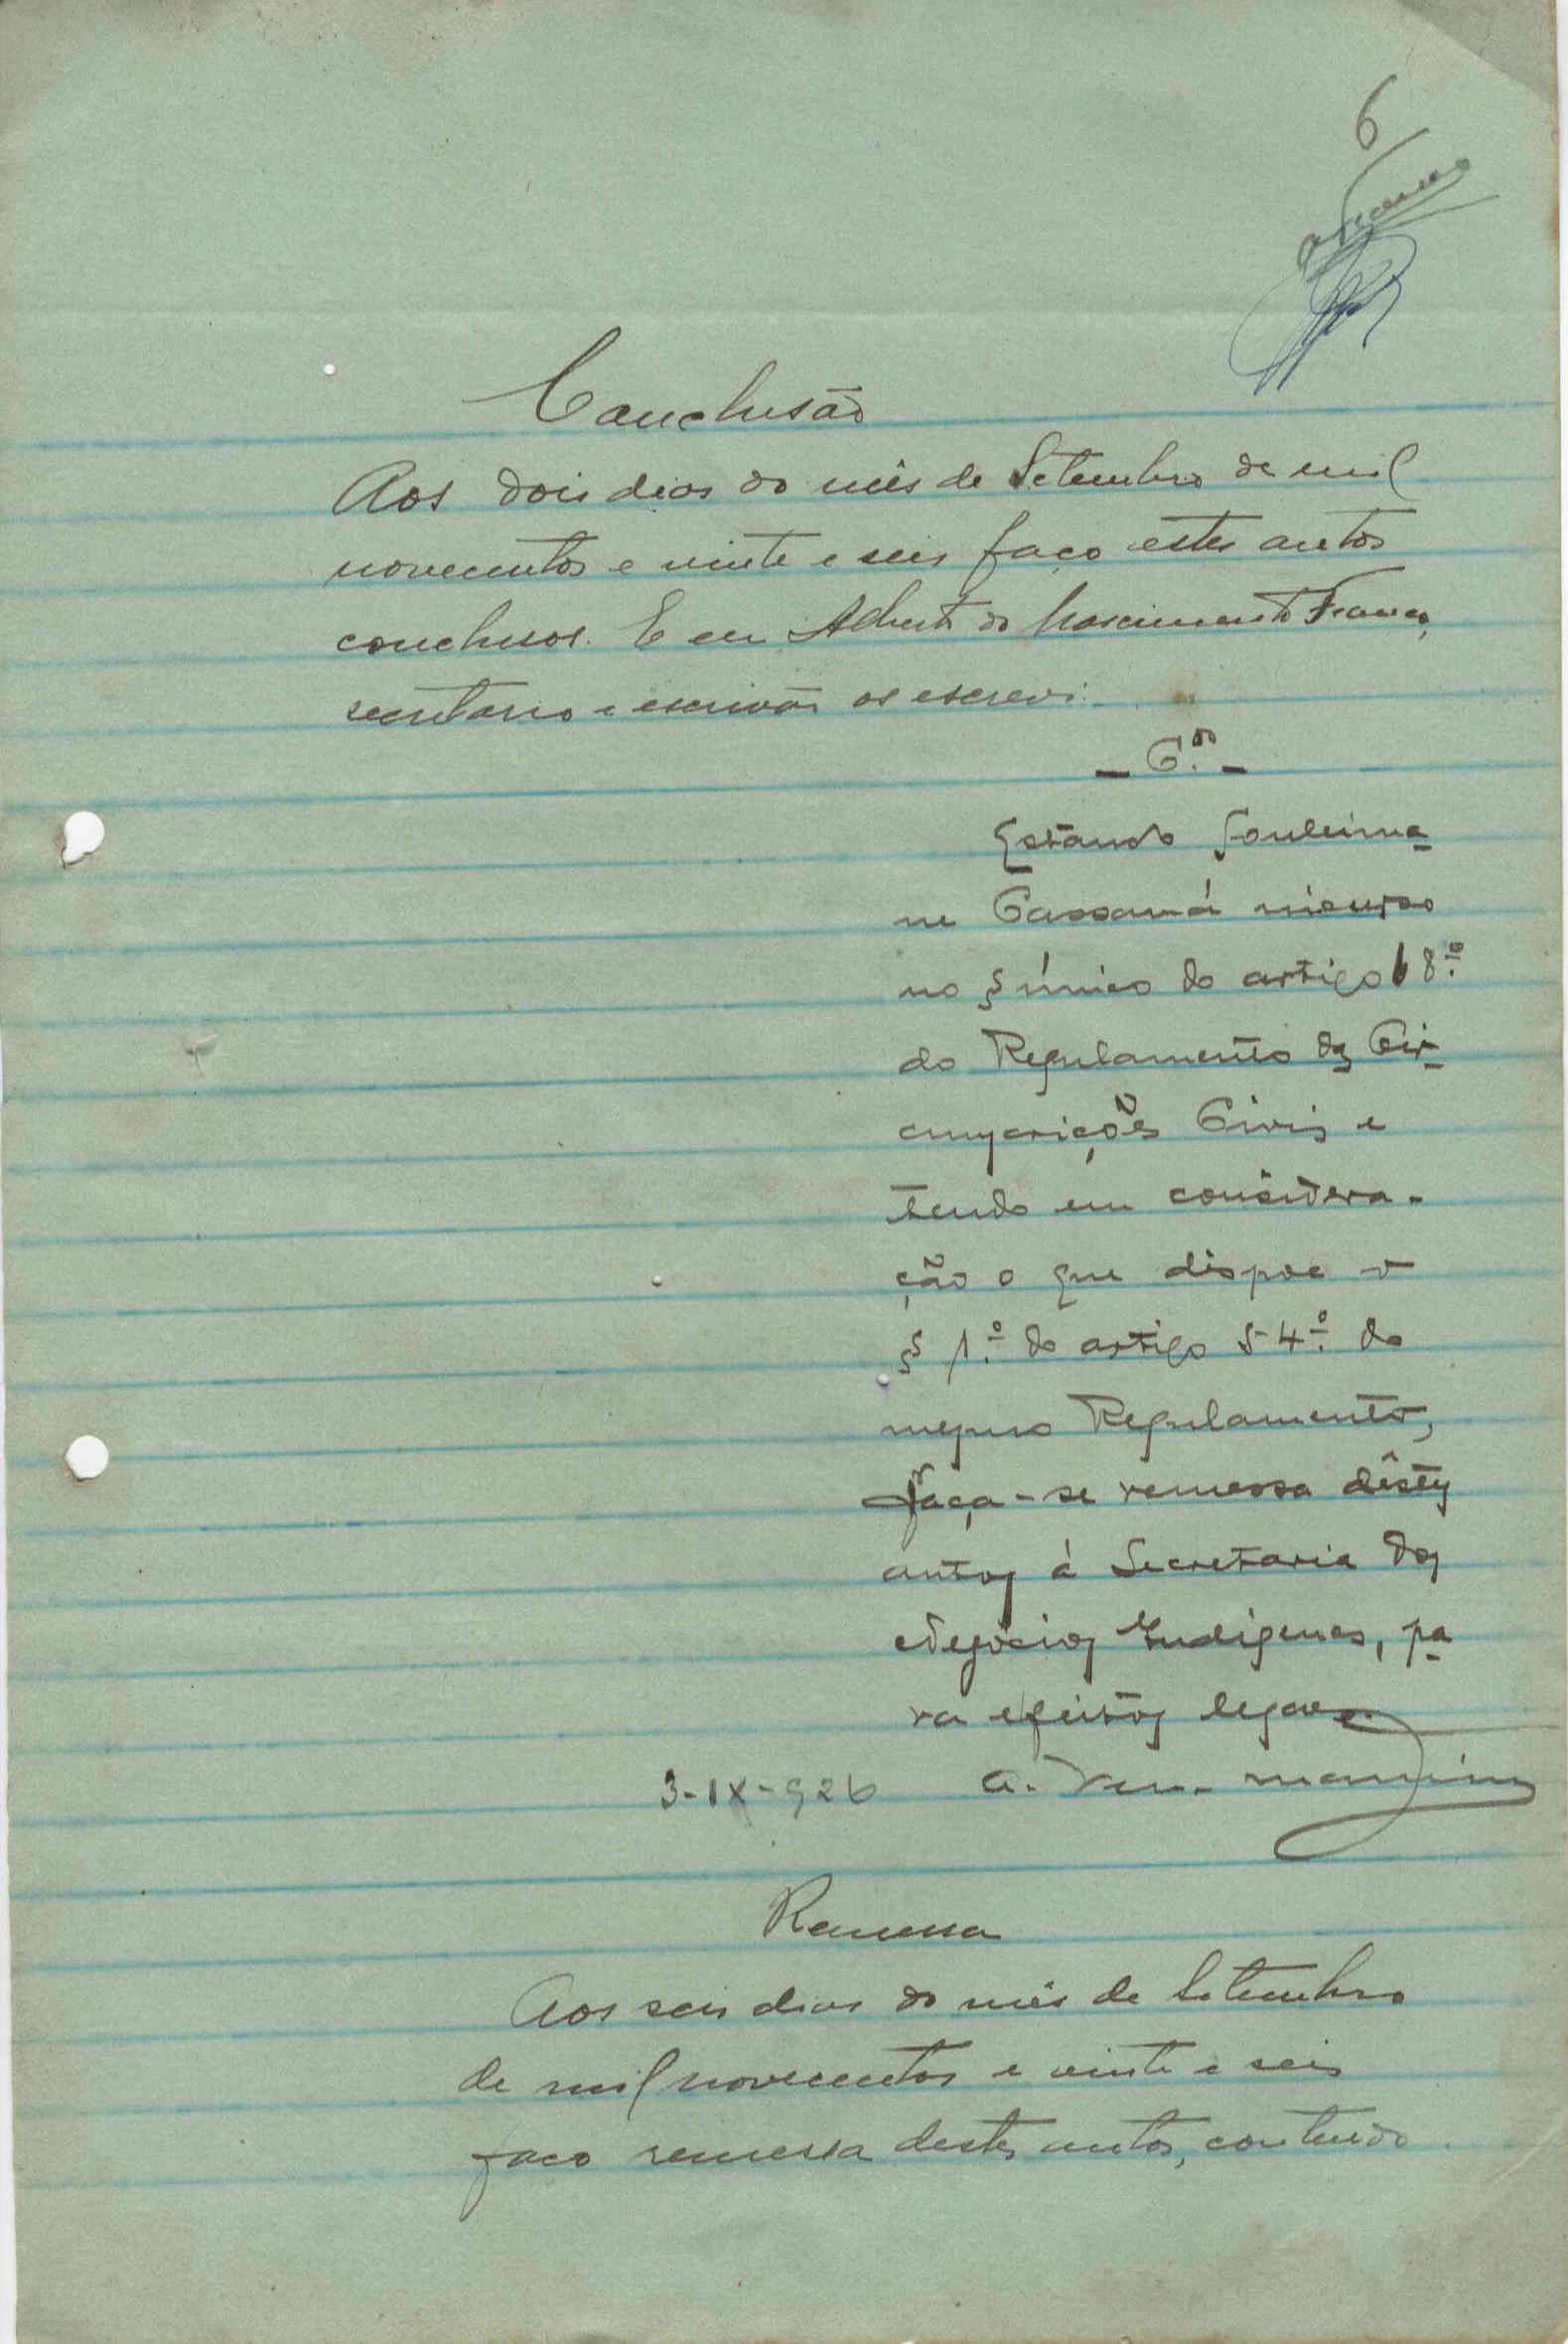 6
Conclusão
Aos dois dias do mês de Setembro de mil
novecentos e vinte e seis faço estes autos
conclusos. E eu Alberto do Nascimento Franco,
secretario e escrivão os escrevi.
Estando Souleima-
ne Cassamá incurso
no § único do artigo 18.º
do Regulamento das Cir-
cunscrições Civis e
tendo em considera-
ção o que dispoe o
§ 1.º do artigo 54.º do
mesmo Regulamento,
faça-se remessa dêstes
autos á Secretaria dos
Negócios Indigenas, pa-
ra efeitos legaes.
3-IX-926
Remessa
Aos seis dias do mês de Setembro
de mil novecentos e vinte e seis
faço remessa destes autos, contendo